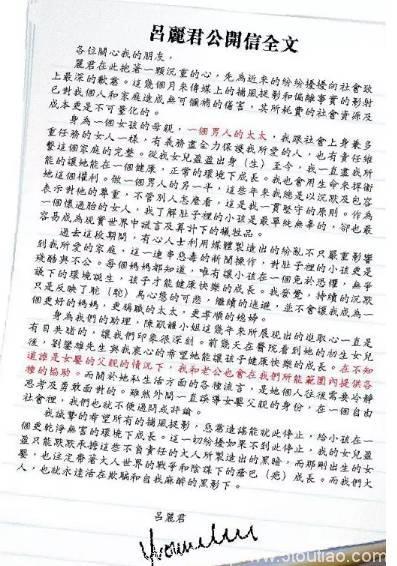 呂麗君公開信全文
各位關心我的朋友,
麗君在此抱著一顆沉重的心,先為近來的紛紛擾擾向社會致
上最深的歉意。這幾個月來傳媒上的捕風捉影和偏離事實的影射
已對我個人和家庭造成無可彌補的傷害,其所耗費的社會資源及
成本更是不可量化的。
身為一個女孩的母親,一個男人的太太,我跟社會上身兼多
重任務的女人一樣,有義務盡全力保護我所愛的人,也有責任維
繫這個家庭的完整。從我女兒盈盈出身(生)至今,我一直盡我所
能的讓她能在一個健康,正常的環境下成長。我也會用生命來捍衛
她這個權利。做一個男人的另一半,這些年來我總是以沉默及包容
表示對他的尊重,不管別人怎麼看,這是我一貫堅守的原則。作為
一個懷過胎的女人,我了解肚子裡的小孩是最單純無辜的,卻也最
容易成為現實世界中謊言及算計下的犧牲品。
過去這段期間,有心人士利用媒體製造出的紛亂不只嚴重影響
到我所愛的家庭,這一連串惡毒的新聞操作,對肚子裡的小孩更是
殘酷與不公。每個媽媽都知道,唯有讓小孩在一個免於恐懼,無爭
議下的環境誕生,孩子才能健康快樂的成長。我發覺,持續的沉默
只是反映了駝(鴕)鳥心態的可悲,繼續的逃避,並不會讓我成為一
個更好的媽媽,更稱職的太太,更孝順的媳婦。
身為我們的助理,陳凱韻小姐這幾年來所展現出的進取心一直是
有目共睹的,讓我們印象很深刻。前幾天在醫院看到她的初生女兒
後,劉鑾雄先生與我衷心的希望她能讓孩子健康快樂的成長。在不知
道誰是女嬰的父親的情況下,我和老公也會在我們所能範圍內提供各
種的協助。而關於她私生活方面的各種流言,是她個人往後需要冷靜
思考及勇敢面對的。雖然外間一直誤導女嬰父親的身份,在一個自由
社會裡,我們也就不便過問或評論。
我誠摯的希望所有的捕風捉影,惡意造謠能就此停止,給小孩在一
個更乾淨無害的環境下成長。這一切紛擾如果不到此停止,我的女兒盈
盈只能默默承擔這些不負責任的大人所製造出的黑暗,而那剛出生的女
嬰,也注定帶著大人世界的戰爭和陰謀下的瘡巴(疤)成長。而我們大
人,也就永遠活在欺騙和自我麻醉的黑影下。
呂麗君
www.5toutiao.com